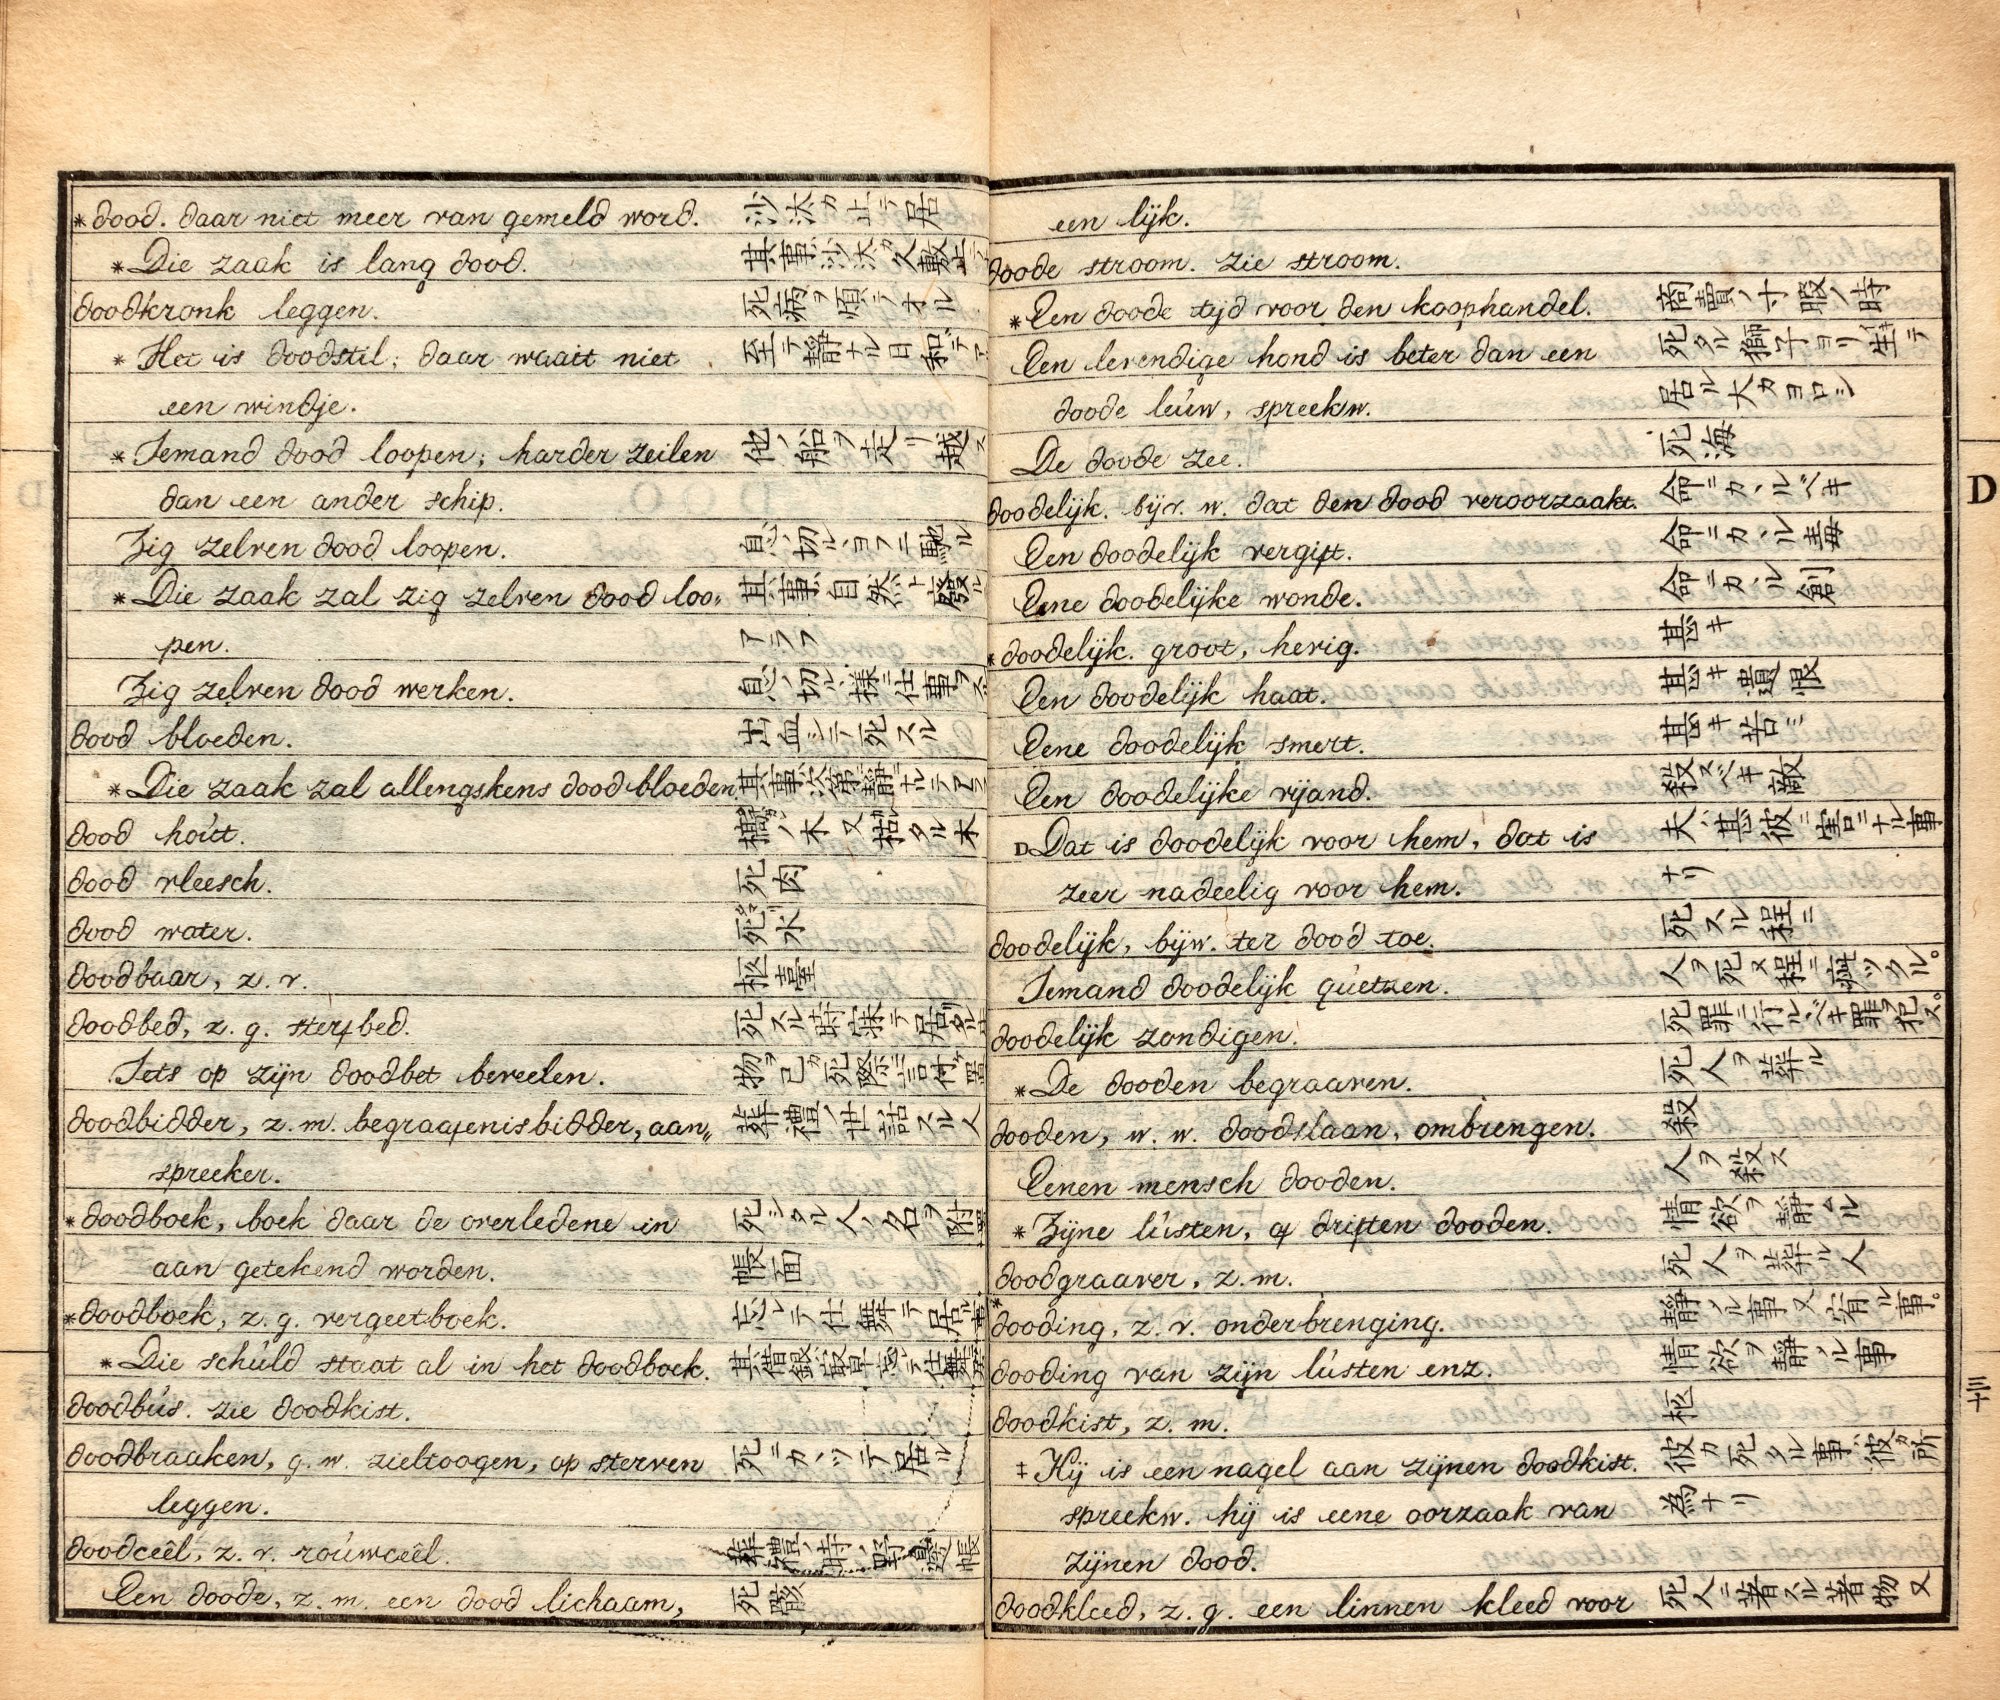 *dood. daar niet meer van gemeld word. 沙汰カ止テ居
*Die zaak is lang dood. 其事沙汰カ久敷止
doodkronk leggen. 死病ヲ煩テオル
*Het is doodstil; daar waait niet 至テ静ナル日和デア
een windje.
*Iemand dood loopen; harder zeilen 他ノ船ヲ走リ越ス
dan een ander schip.
Zig zelven dood loopen. 息ノ切ルヽヨフニ馳ル
*Die zaak zal zig zelven dood loo„ 其事自然ト廢ル
pen. アラフ
Zig zelven dood werken. 息ノ切ル様ニ仕事ヲス
dood bloeden. 出血シテ死スル
*Die zaak zal allengskens dood bloeden 其事次第静ナルテアラ
dood hoút. ノ木又枯タル木
dood vleesch. 死肉
dood water. 死水
doodbaar, z. v. 柩臺
doodbed, z. g. sterfbed. 死スル時寐テ居
Iets op zijn doodbet beveelen. 物ヲ己カ死際ニ言付置
doodbidder, z. m. begraafenisbidder, aan„ 葬禮ノ世話スル人
spreeker.
*doodboek, boek daar de overledene in 死シタル人ノ名ヲ附
aan getekend worden. 帳面
*doodboek, z. g. vergeetboek. 忘レテ仕舞テ居ル事
*Die schúld staat al in het doodboek. 其借銀最早忘テ仕舞
doodbús. zie doodkist.
doodbraaken, g. w. zieltoogen, op sterven 死ニカヽツテ居ル
leggen.
doodceêl, z. v. roúwceêl. 葬禮ノ時ノ野邊帳
Een doode, z. m. een dood lichaam, 死骸
een lijk.
doode stroom. zie stroom.
*Een doode tijd voor den koophandel. 商賣ノ寸暇ノ時
Een levendige hond is beter dan een 死タル獅子ヨリ生テ
doode leúw, spreekw. 居ル犬カヨロシ
De doode zee. 死海
doodelijk. bijv. w. dat den dood veroorzaakt. 命ニカヽルベキ
Een doodelijk vergift. 命ニカヽル毒
Eene doodelijke wonde. 命ニカヽル創
*doodelijk. groot, hevig. 甚キ
Een doodelijk haat. 甚キ遺恨
Eene doodelijk smert. 甚キ苦ミ
Een doodelijke vijand. 殺スベキ敵
DDat is doodelijk voor hem, dat is 夫ハ甚彼ニ害ニナル事
zeer nadeelig voor hem. ナリ
doodelijk, bijw. ter dood toe. 死スル程ニ
Iemand doodelijk qúetzen. 人ヲ死ヌ程ニ痺ツクル。
doodelijk zondigen. 死罪ニ行ルベキ罪ヲ犯ス。
*De dooden begraaven. 死人ヲ葬ル
dooden, w. w. doodslaan, ombrengen. 殺
Eenen mensch dooden. 人ヲ殺ス
*Zijne lústen, of driften dooden. 情欲ヲ静ムル
doodgraaver, z. m. 死人ヲ葬ル人
*dooding, z. v. onderbrenging. 静メル事又宥ル事。
dooding van zijn lústen enz. 情欲ヲ静メル事
doodkist, z. m. 柩
‡Hij is een nagel aan zijnen doodkist. 彼カ死タル事ハ彼カ所
spreekw. hij is eene oorzaak van 為ナリ
zijnen dood.
doodkleed, z. g. een linnen kleed voor 死人ニ著スル著物又
D